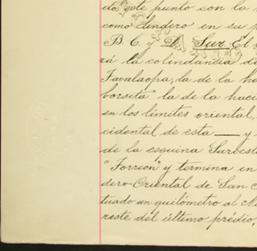 do, este punto son la
como lindero en su p
B. C. y D. Sur. El
rá la colindancia de
Tavalaopa, la de la ha
borsita" la de la haci
en los límites oriental,
cidental de esta — y
de la esquina Suroeste
"Torreon" y termina en
dero Oriental de San
tuado un quilómetro al N
reste del último prédio,